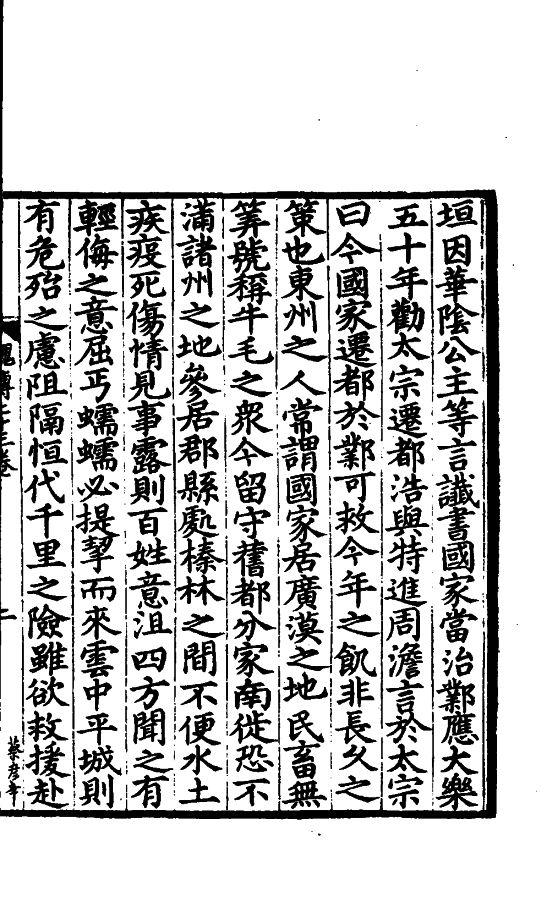 垣因華陰公主等言讖書國家當治鄴應大樂
五十年勸太宗遷都浩與特進周澹言於太宗
曰今國家遷都於鄴可救今年之飢非長久之
策也東州之人常謂國家居廣漠之地民畜無
筭號稱牛毛之衆今留守舊都分家南徙恐不
滿諸州之地參居郡縣處榛林之間不便水土
疾疫死傷情見事露則百姓意沮四方聞之有
輕侮之意屈丐蠕蠕必提挈而來雲中平城則
有危殆之慮阻隔恒代千里之險雖欲救援赴
二
蔡彥年